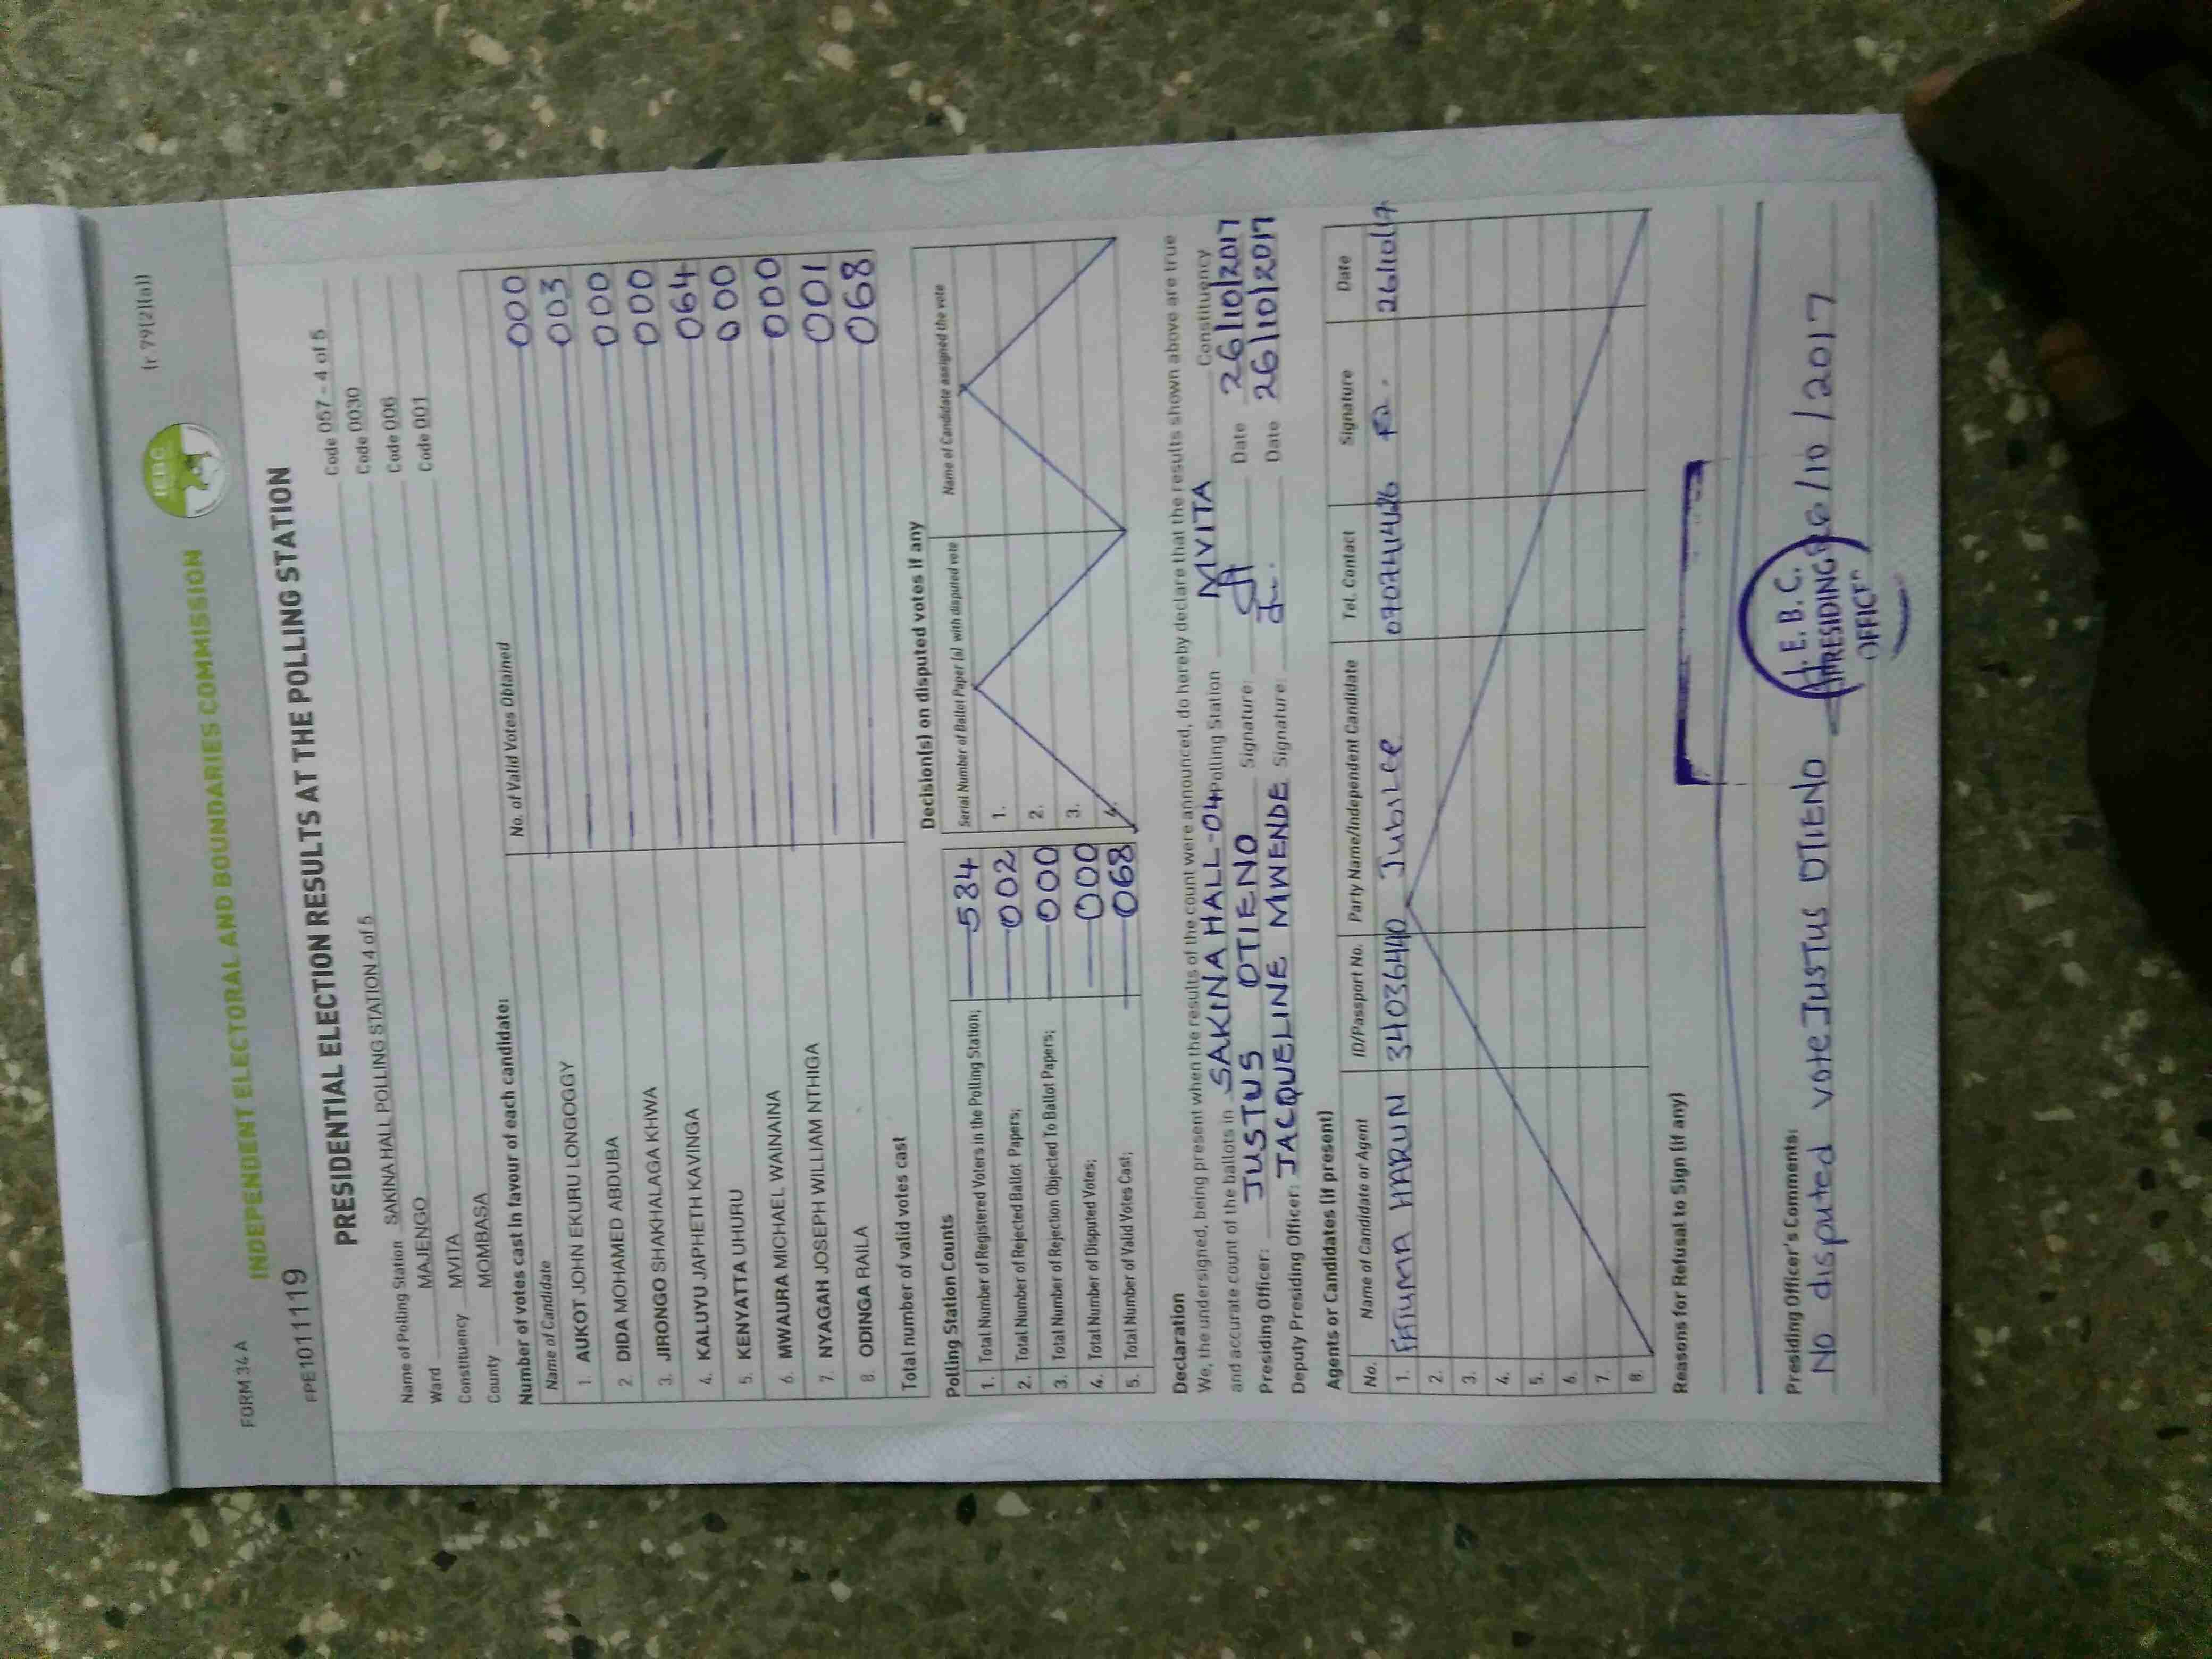 FORM 34 A
(r 79(2)(a))
IEBC
INDEPENDENT ELECTORAL AND BOUNDARIES COMMISSION
PRESIDENTIAL ELECTION RESULTS AT THE POLLING STATION
Name of Polling Station SAKINA HALL POLLING STATION 4 of 5 Code 057 - 4 of 5
Ward MAJENGO Code 0030
Constituency MVITA Code 006
County MOMBASA Code 001
Number of votes cast in favour of each candidate:
Name of Candidate No. of Valid Votes Obtained
1. AUKOT JOHN EKURU LONGOGGY 000
2. DIDA MOHAMED ABDUBA 003
3. JIRONGO SHAKHALAGA KHWA 000
4. KALUYU JAPHETH KAVINGA 000
5. KENYATTA UHURU 064
6. MWAURA MICHAEL WAINAINA 000
7. NYAGAH JOSEPH WILLIAM NTHIGA 000
8. ODINGA RAILA 001
Total number of valid votes cast 068
Polling Station Counts
1. Total Number of Registered Voters in the Polling Station; 584
2. Total Number of Rejected Ballot Papers; 002
3. Total Number of Rejection Objected To Ballot Papers; 000
4. Total Number of Disputed Votes; 000
5. Total Number of Valid Votes Cast; 068
Decision(s) on disputed votes if any
Serial Number of Ballot Paper (s) with disputed vote Name of Candidate assigned the vote
1.
2.
3.
4.
Declaration
We, the undersigned, being present when the results of the count were announced, do hereby declare that the results shown above are true
and accurate count of the ballots in SAKINA HALL-04 Polling Station MVITA Constituency
Presiding Officer: JUSTUS OTIENO Signature: Date 26/10/2017
Deputy Presiding Officer: JACQUELINE MWENDE Signature: Date 26/10/2017
Agents or Candidates (if present)
No. Name of Candidate or Agent ID/Passport No. Party Name/Independent Candidate Tel. Contact Signature Date
1. FATUMA HARUN 34036440 Jubilee 26/10/17
2.
3.
4.
5.
6.
7.
8.
Reasons for Refusal to Sign (if any)
Presiding Officer's Comments:
No disputed vote JUSTUS OTIENO 26/10/2017
I. E. B. C.
PRESIDING
OFFICE